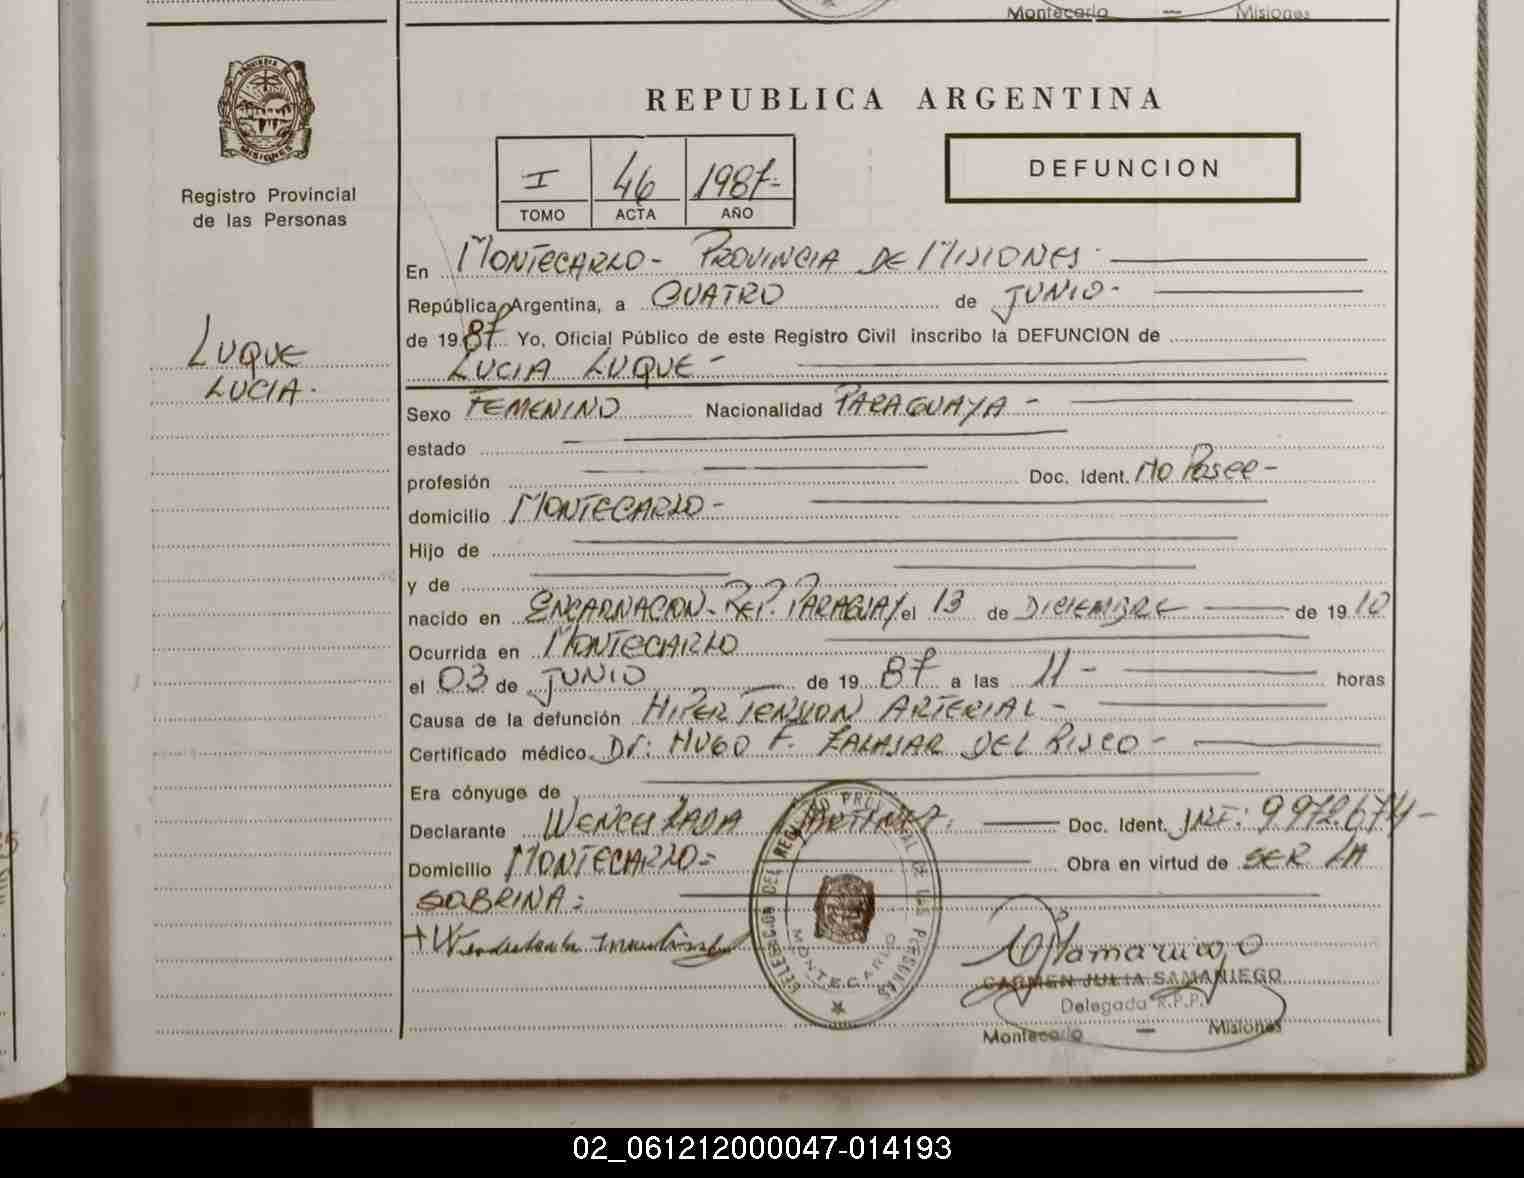 Montecarlo — Misiones
PROVINCIA DE
MISIONES
Registro Provincial
de las Personas
LUQUE
LUCIA.
REPUBLICA ARGENTINA
I 46 1987-
TOMO ACTA AÑO
DEFUNCION
En MONTECARLO - PROVINCIA DE MISIONES -
República Argentina, a CUATRO de JUNIO -
de 1987 Yo, Oficial Público de este Registro Civil inscribo la DEFUNCION de
LUCIA LUQUE -
Sexo FEMENINO Nacionalidad PARAGUAYA -
estado
profesión Doc. Ident. No Posee -
domicilio MONTECARLO -
Hijo de
y de
nacido en ENCARNACION - REP. PARAGUAY el 13 de DICIEMBRE de 1910
Ocurrida en MONTECARLO
el 03 de JUNIO de 1987 a las 11 - horas
Causa de la defunción HIPERTENSION ARTERIAL -
Certificado médico Dr: HUGO F. ZALASAR DEL RISCO -
Era cónyuge de
Declarante WENCESLADA MARTINEZ. Doc. Ident. 9.972.674 -
Domicilio MONTECARLO = Obra en virtud de SER LA
SOBRINA =
DELEGACION DEL REGISTRO PROVINCIAL DE LAS PERSONAS
MONTECARLO
Samaniego
CARMEN JULIA SAMANIEGO
Delegada R.P.P.
Montecarlo — Misiones
02_061212000047-014193